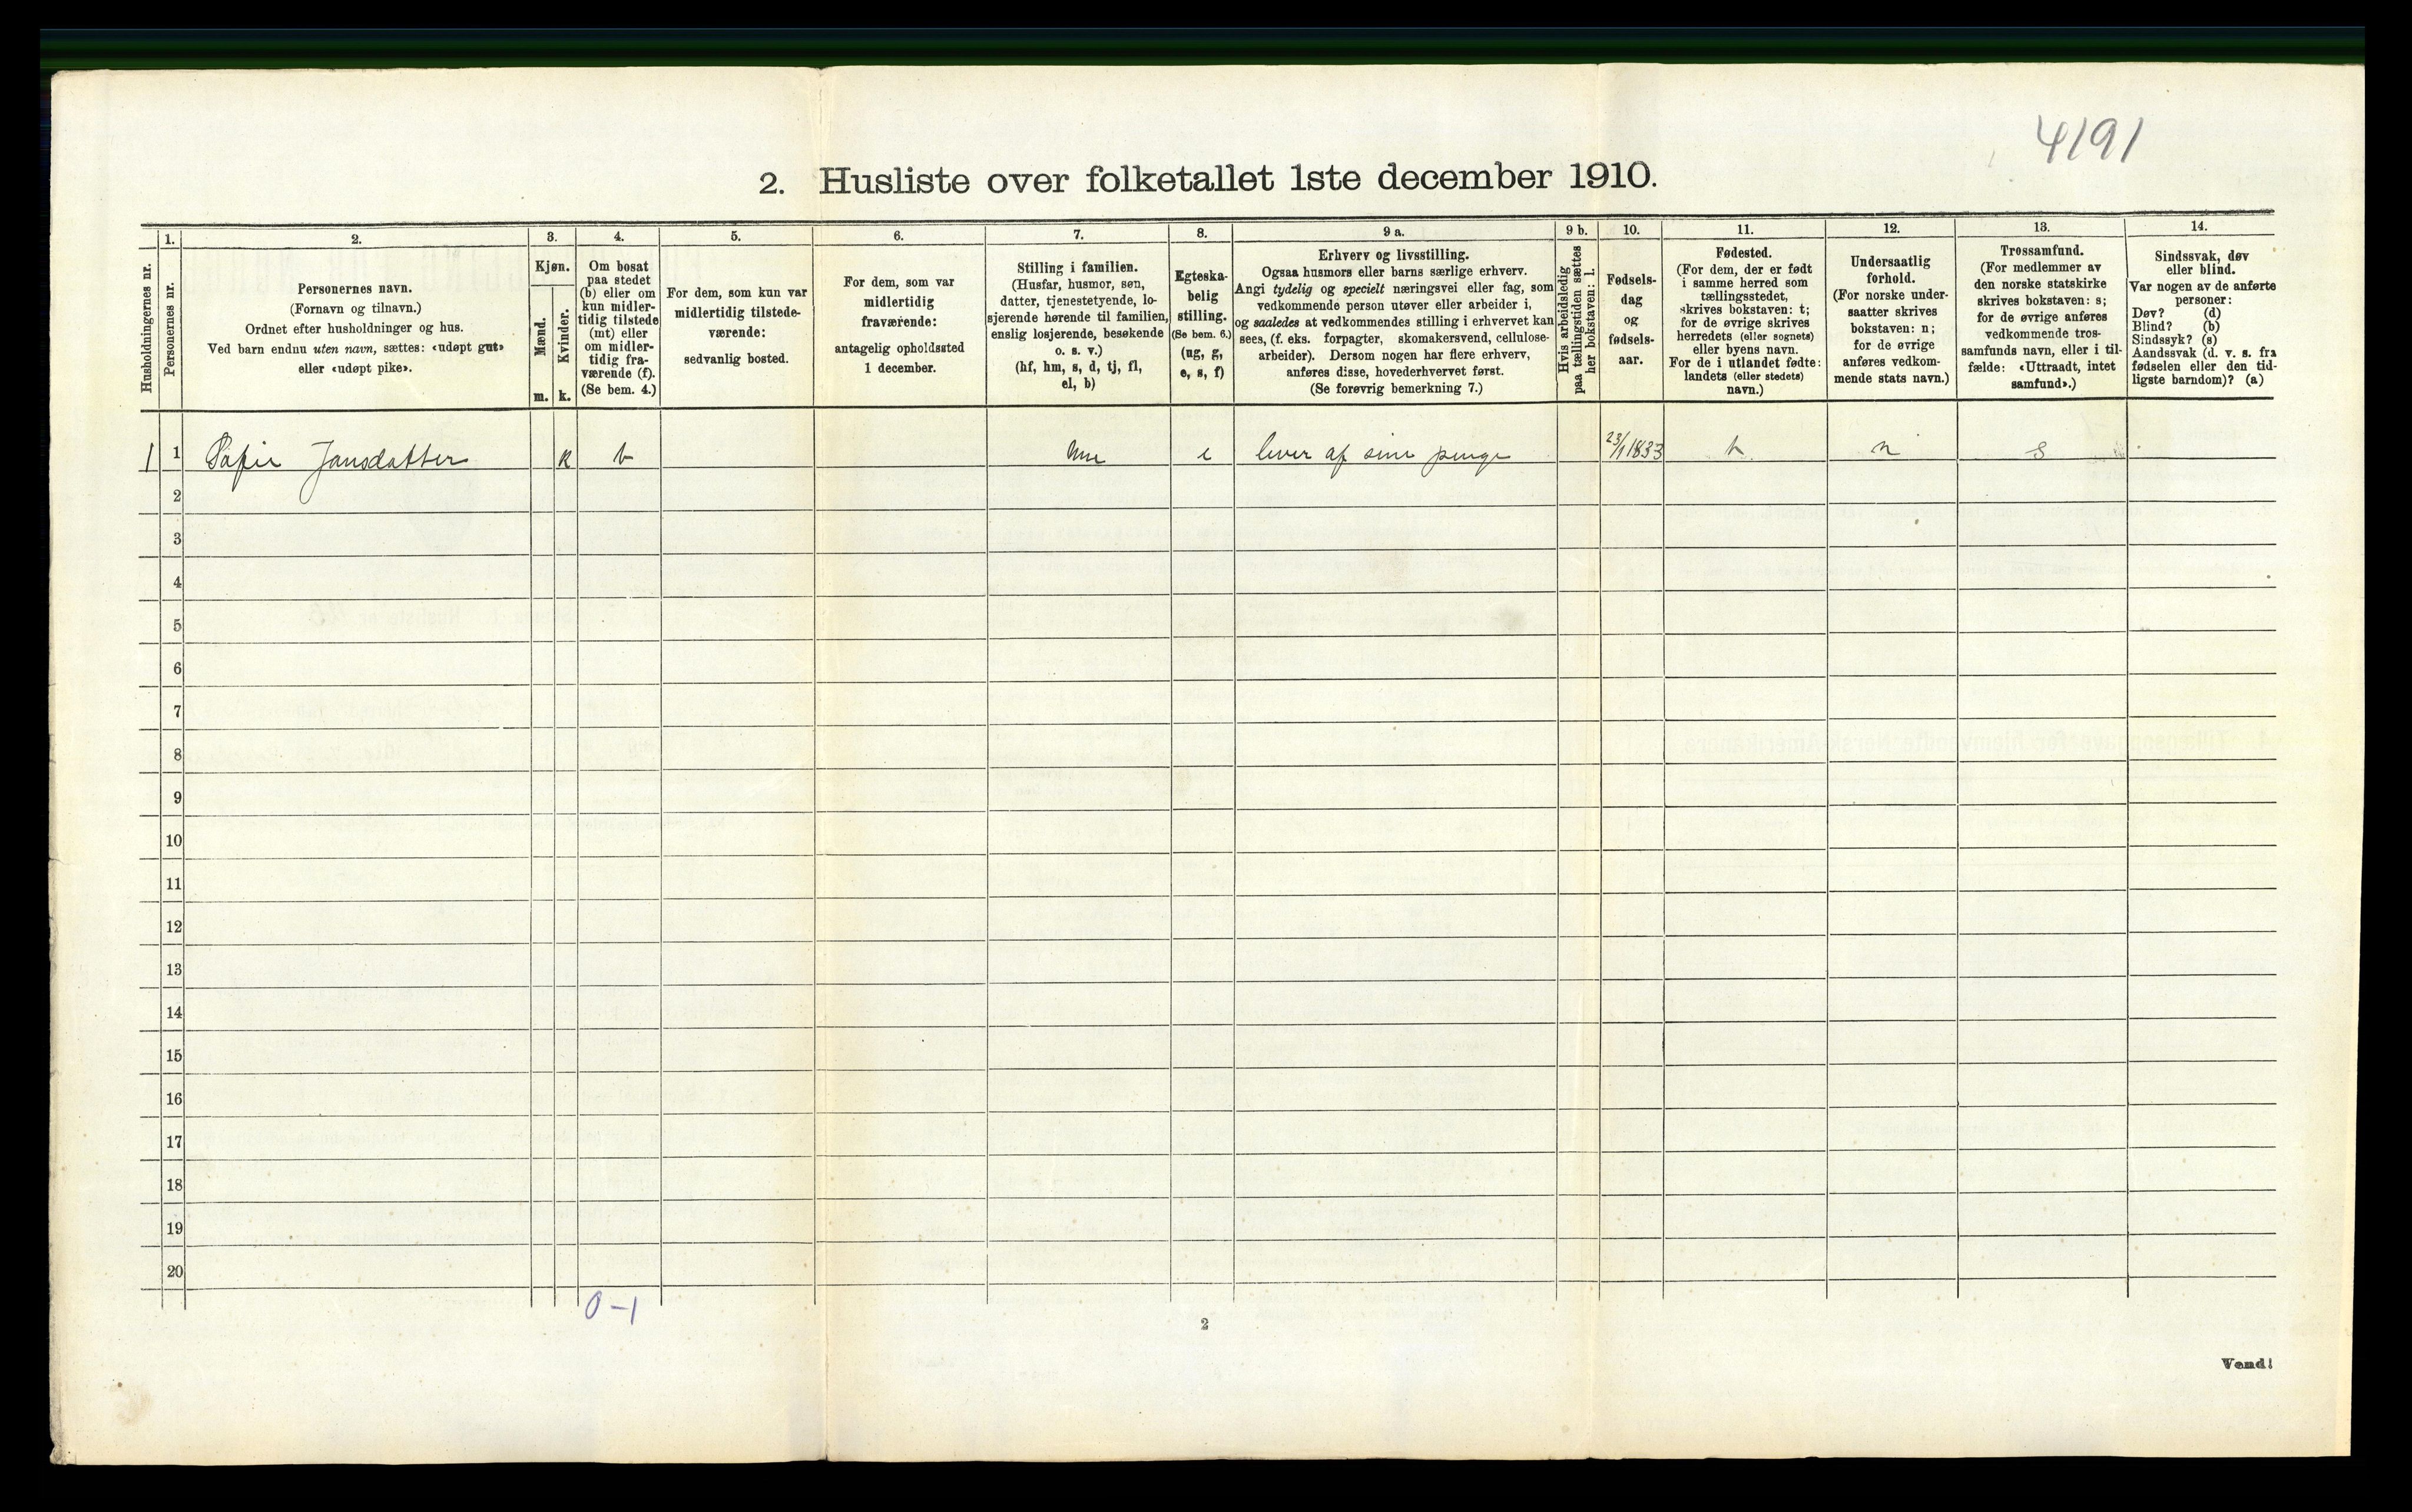 4191
2. Husliste over folketallet 1ste december 1910.
Husholdningernes nr.
1.
Personernes nr.
2.
Personernes navn.
(Fornavn og tilnavn.)
Ordnet efter husholdninger og hus.
Ved barn endnu uten navn, sættes: «udøpt gut»
eller «udøpt pike».
3.
Kjøn.
Mænd.
Kvinder.
m. k.
4.
Om bosat
paa stedet
(b) eller om
kun midler-
tidig tilstede
(mt) eller
om midler-
tidig fra-
værende (f).
(Se bem. 4.)
5.
For dem, som kun var
midlertidig tilstede-
værende:
sedvanlig bosted.
6.
For dem, som var
midlertidig
fraværende:
antagelig opholdssted
1 december.
7.
Stilling i familien.
(Husfar, husmor, søn,
datter, tjenestetyende, lo-
sjerende hørende til familien,
enslig losjerende, besøkende
o. s. v.)
(hf, hm, s, d, tj, fl,
el, b)
8.
Egteska-
belig
stilling.
(Se bem. 6.)
(ug, g,
e, s, f)
9 a.
Erhverv og livsstilling.
Ogsaa husmors eller barns særlige erhverv.
Angi tydelig og specielt næringsvei eller fag, som
vedkommende person utøver eller arbeider i,
og saaledes at vedkommendes stilling i erhvervet kan
sees, (f. eks. forpagter, skomakersvend, cellulose-
arbeider). Dersom nogen har flere erhverv,
anføres disse, hovederhvervet først.
(Se forøvrig bemerkning 7.)
9 b.
Hvis arbeidsledig
paa tællingstiden sættes
her bokstaven: l.
10.
Fødsels-
dag
og
fødsels-
aar.
11.
Fødested.
(For dem, der er født
i samme herred som
tællingsstedet,
skrives bokstaven: t;
for de øvrige skrives
herredets (eller sognets)
eller byens navn.
For de i utlandet fødte:
landets (eller stedets)
navn.)
12.
Undersaatlig
forhold.
(For norske under-
saatter skrives
bokstaven: n;
for de øvrige
anføres vedkom-
mende stats navn.)
13.
Trossamfund.
(For medlemmer av
den norske statskirke
skrives bokstaven: s;
for de øvrige anføres
vedkommende tros-
samfunds navn, eller i til-
fælde: «Uttraadt, intet
samfund».)
14.
Sindssvak, døv
eller blind.
Var nogen av de anførte
personer:
Døv? (d)
Blind? (b)
Sindssyk? (s)
Aandssvak (d. v. s. fra
fødselen eller den tid-
ligste barndom)? (a)
1 1 Sofie Jansdatter k b hm e lever af sine penge 23/1 1833 t n s
2
3
4
5
6
7
8
9
10
11
12
13
14
15
16
17
18
19
20
0-1
2
Vend!